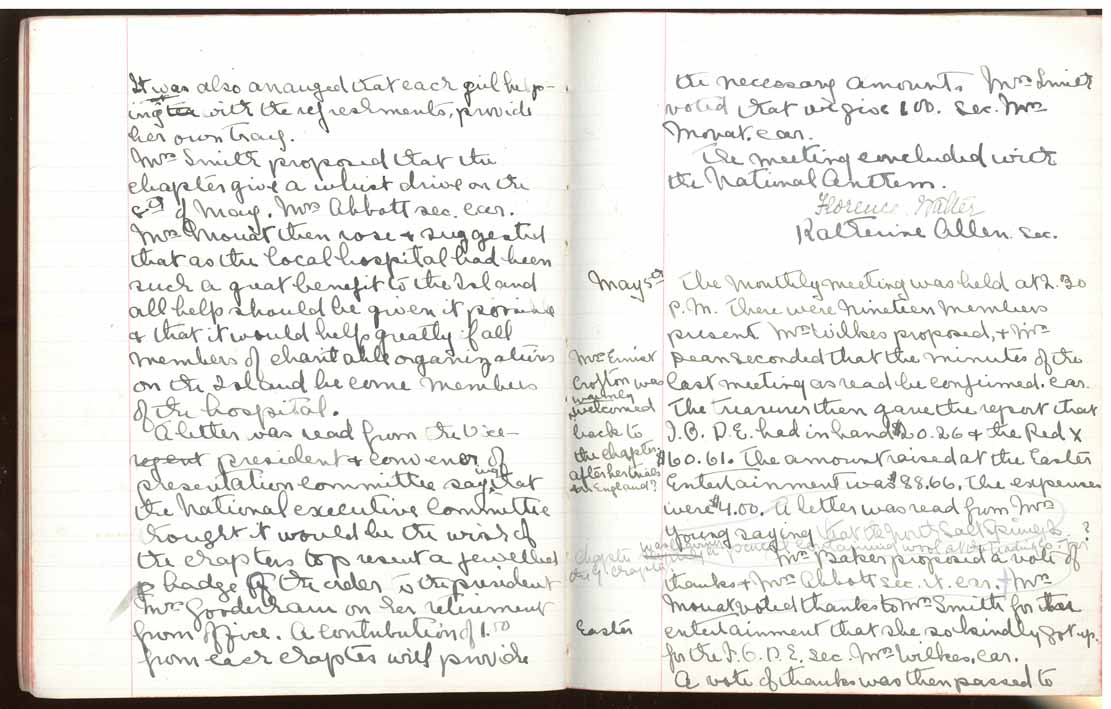 It was also arranged that each girl help-
ing with the refreshments, provide
her own tray.
Mrs Smith proposed that the
chapter give a whist drive on the
8th of May. Mrs Abbott sec. car.
Mrs Mouat then rose & suggested
that as the local hospital had been
such a great benefit to the Island
all help should be given it possible
& that it would help greatly if all
members of charitable organizations
on the Island become members
of the hospital.
A letter was read from the Vice-
regent president & convenor of
presentation committee saying that
the National executive Committee
thought it would be the wish of
the chapters to present a jewelled
badge of the order to the president
Mrs Gooderham on her retirement
from office. A contribution of 1.00
from each chapter will provide
the necessary amount. Mrs Smith
voted that we give 1.00. Sec. Mrs
Mouat. car.
The meeting concluded with
the National Anthem.
Florence Walter
Katherine Allen. sec.
May 5th
The Monthly meeting was held at 2.30
P.M. There were Nineteen members
present Mrs Wilkes proposed, & Mrs
Dean seconded that the minutes of the
last meeting as read be confirmed. car.
The treasurer then gave the report that
I.O.D.E. had in hand $20.26 & the Red X
$60.61. The amount raised at the Easter
Entertainment was $88.66. The expenses
were $4.00. A letter was read from Mrs
Young saying that the
Mrs Baker proposed a vote of
thanks & Mrs Abbott sec. it. car. Mrs
Mouat voted thanks to Mrs Smith for the
entertainment that she so kindly got up.
for the I.O.D.E. sec. Mrs Wilkes, car.
A vote of thanks was then passed to
Mrs Ernest
Crofton was
warmly
welcomed
back to
the chapter
after her
England?
chapter
Easter